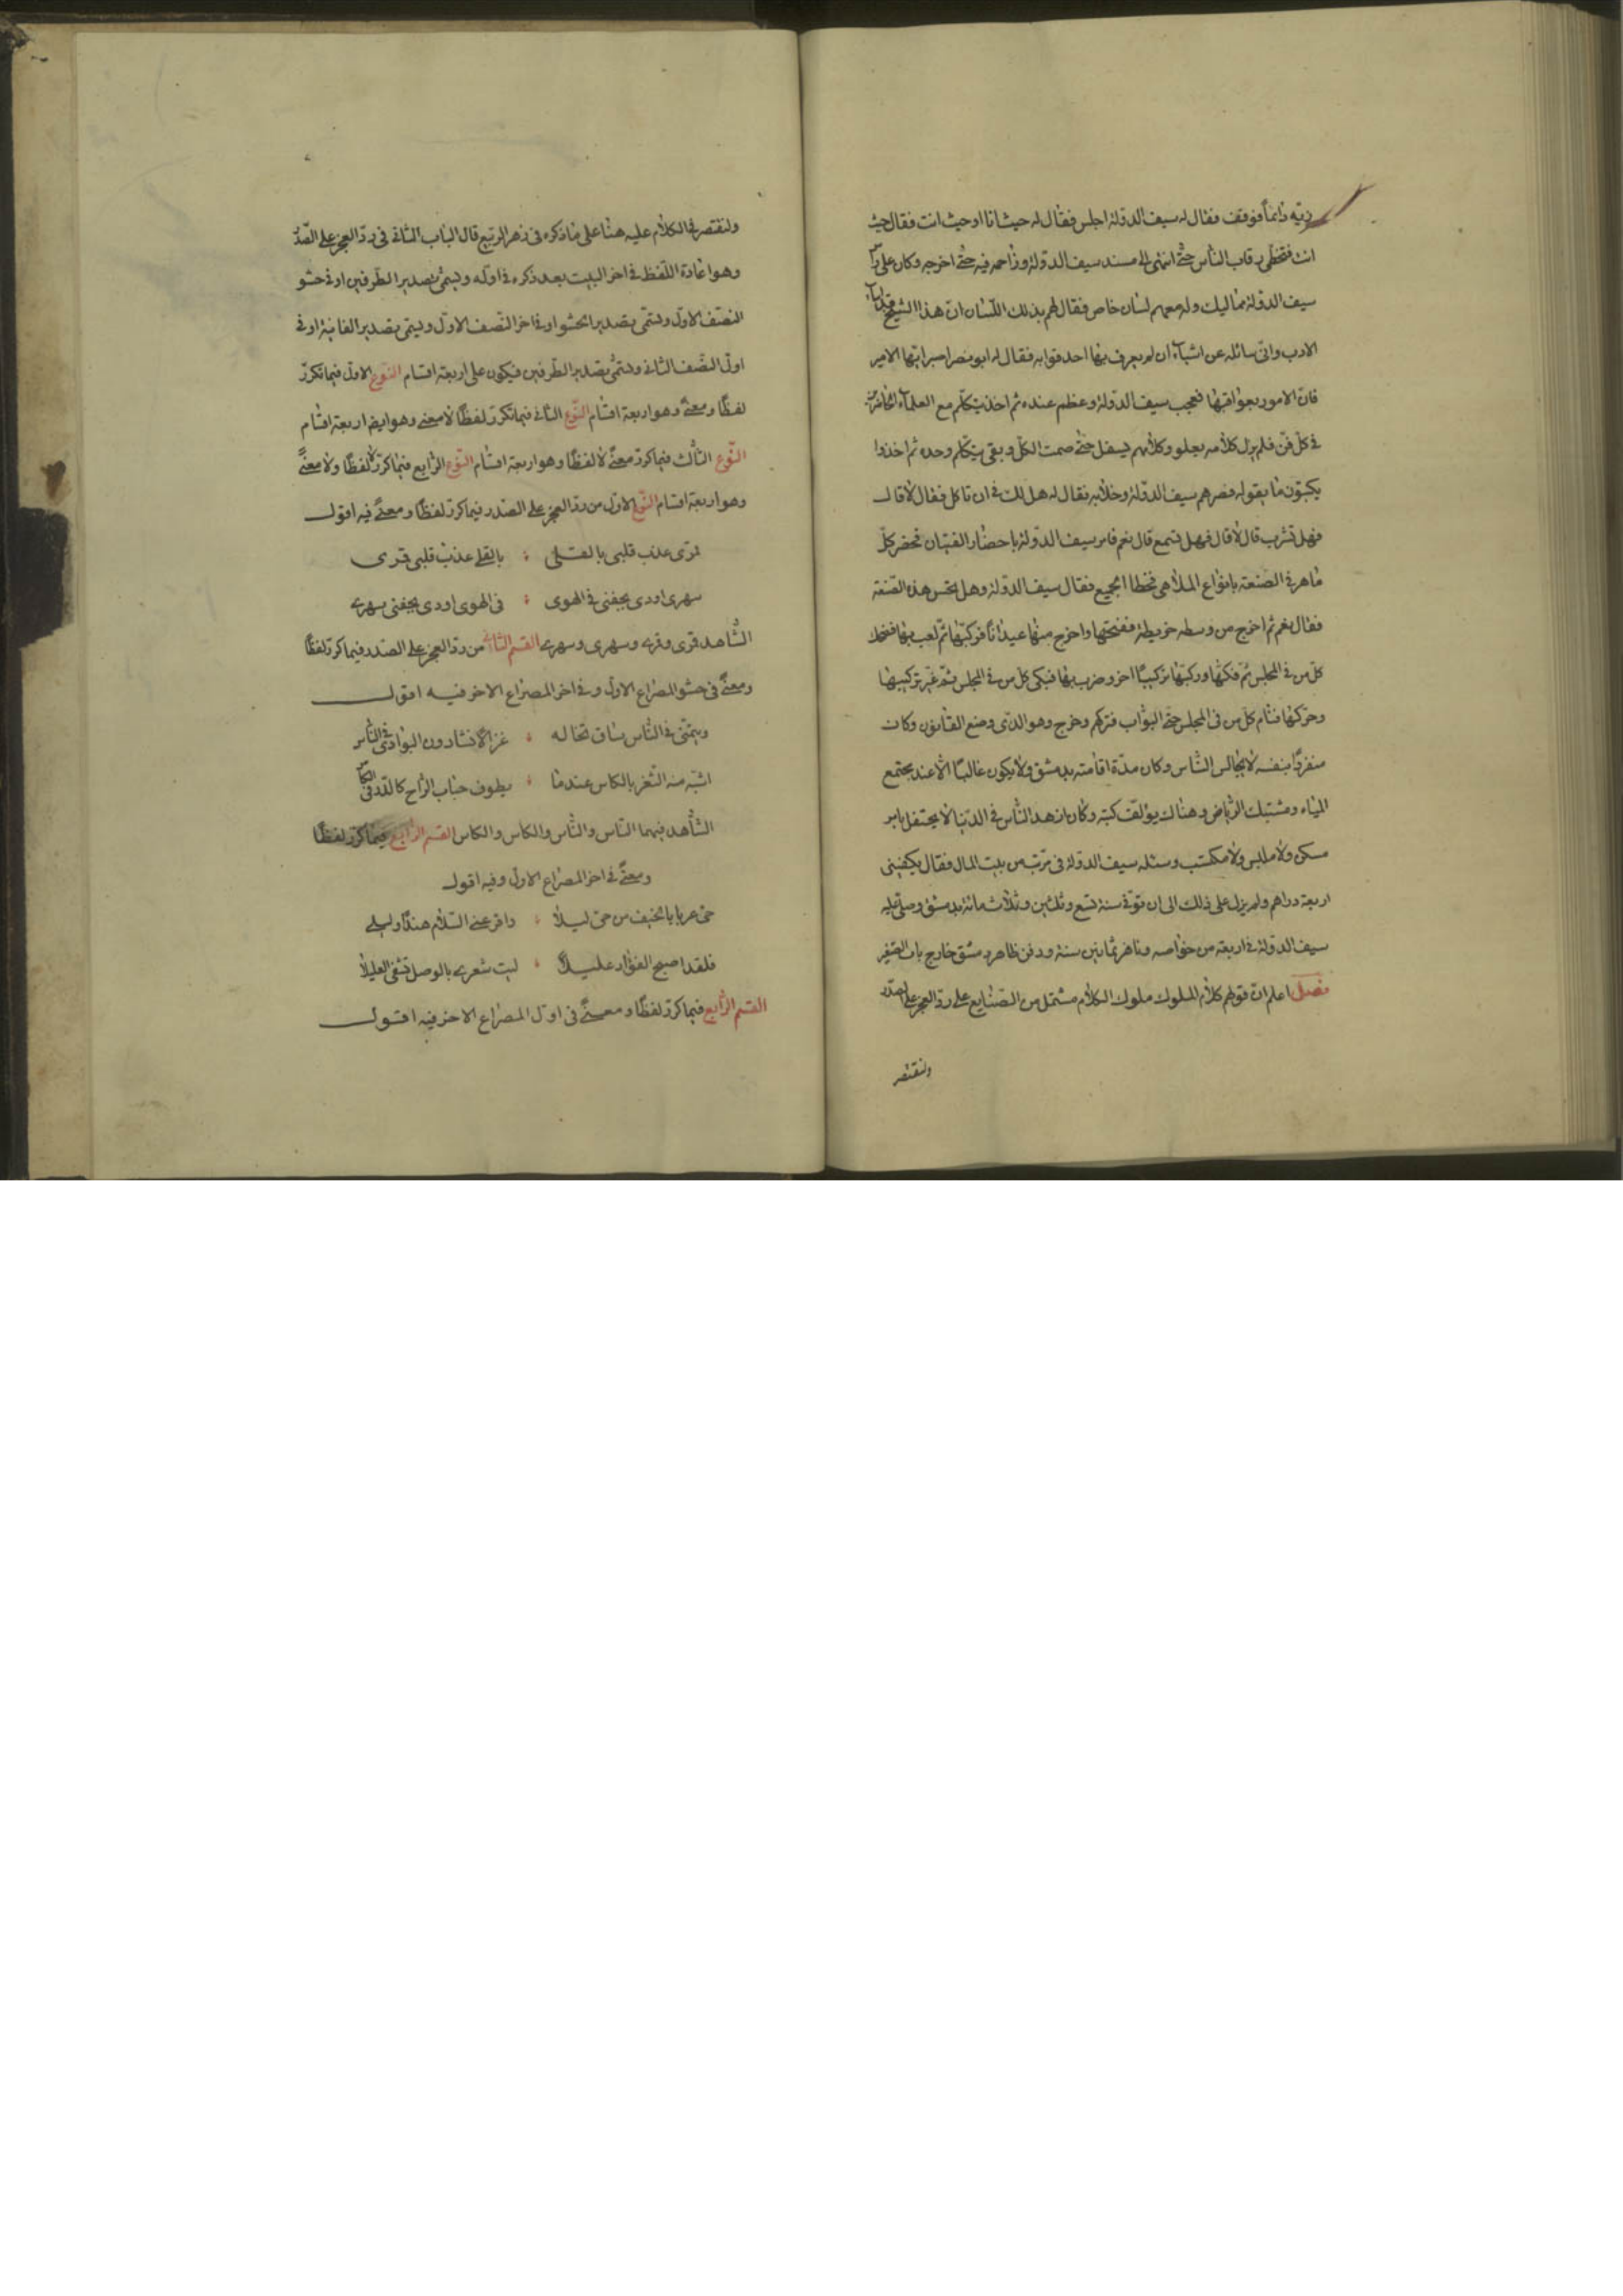 زيه دائماً فوقف فقال له سيف الدولة اجلس فقال له حيث انا او حيث انت فقال حيث
انت فتخطى رقاب الناس حتى انتهى الى مسند سيف الدولة وزاحمه فيه حتى اخرجه وكان على راس
سيف الدولة مماليك وله معهم لسان خاص فقال لهم بذلك اللسان ان هذا الشيخ قد اساء
الادب وانى سائله عن اشياء ان لم يعرف بها احد قوا به فقال له ابو نصر اصبر ايها الامير
فان الامور بعواقبها فعجب سيف الدولة وعظم عنده ثم اخذ يتكلم مع العلماء الحاضرين
فى كل فن فلم يزل كلامه يعلو وكلامهم يسفل حتى صمت الكل وبقى يتكلم وحده ثم اخذوا
يكتبون ما يقوله فصرفهم سيف الدولة وخلا به فقال له هل لك فى ان تاكل فقال لا قال
فهل تشرب قال لا قال فهل تسمع قال نعم فامر سيف الدولة باحضار القيان فحضر كل
ماهر فى الصنعة بانواع الملاهى فخطا الجميع فقال سيف الدولة وهل تحسن هذه الصنعة
فقال نعم ثم اخرج من وسطه خريطة ففتحها واخرج منها عيداناً فركبها ثم لعب بها فضحك
كل من فى المجلس ثم فكها وركبها تركيباً اخر وضرب بها فبكى كل من فى المجلس ثم غير تركيبها
وحركها فنام كل من فى المجلس حتى البواب فتركهم وخرج وهو الذى وضع القانون وكان
منفرداً بنفسه لا يجالس الناس وكان مدة اقامته بدمشق ولا يكون غالباً الا عند مجتمع
المياه ومشتبك الرياض وهناك يؤلف كتبه وكان ازهد الناس فى الدنيا لا يحتفل بامر
مسكن ولا ملبس ولا مكتسب وسئله سيف الدولة فى مرتب من بيت المال فقال يكفينى
اربعة دراهم ولم يزل على ذلك الى ان توفى سنة تسع وثلثين وثلاث مائة بدمشق وصلى عليه
سيف الدولة فى اربعة من خواصه وناهز ثمانين سنة ودفن ظاهر دمشق خارج باب الصغير
فصل اعلم ان قولهم كلام الملوك ملوك الكلام مشتمل من الصنايع على رد العجز على الصدر
ولنقتصر
ولنقتصر فى الكلام عليه هنا على ما ذكره فى زهر الربيع قال الباب الثانى فى رد العجز على الصدر
وهو اعادة اللفظ فى اخر البيت بعد ذكره فى اوله ويسمى تصدير الطرفين او فى حشو
النصف الاول ويسمى تصدير الحشو او فى اخر النصف الاول ويسمى تصدير القافية او فى
اول النصف الثانى ويسمى تصدير الطرفين فيكون على اربعة اقسام النوع الاول فيما تكرر
لفظاً ومعنىً وهو اربعة اقسام النوع الثانى فيما تكرر لفظاً لا معنى وهو ايضا اربعة اقسام
النوع الثالث فيما كرر معنىً لا لفظاً وهو اربعة اقسام النوع الرابع فيما كرر لا لفظاً ولا معنىً
وهو اربعة اقسام النوع الاول من رد العجز على الصدر فيما كرر لفظاً ومعنىً فيه اقول
قرى عذب قلبى بالقلى ؛ بالقلى عذب قلبى قرى
سهرى اودى بجفنى فى الهوى ؛ فى الهوى اودى بجفنى سهرى
الشاهد قرى وقرى وسهرى وسهرى القسم الثانى من رد العجز على الصدر فيما كرر لفظاً
ومعنىً فى حشو المصراع الاول وفى اخر المصراع الاخر فيه اقول
ويمتى فى الناس ساق تخاله ؛ غزالا نشا دون البوادى فى الناس
اشبه منه الثغر بالكاس عندما ؛ يطوف حباب الراح كالدر فى الكاس
الشاهد فيهما الناس والناس والكاس والكاس القسم الرابع فيما كرر لفظاً
ومعنىً فى اخر المصراع الاول وفيه اقول
حى عربا بالخيف من حى ليلا ؛ واقر عنى السلام هنداً وليلى
فلقد اصبح الفؤاد عليلاً ؛ ليت شعرى بالوصل تشفى العليلا
القسم الرابع فيما كرر لفظاً ومعنىً فى اول المصراع الاخر فيه اقول